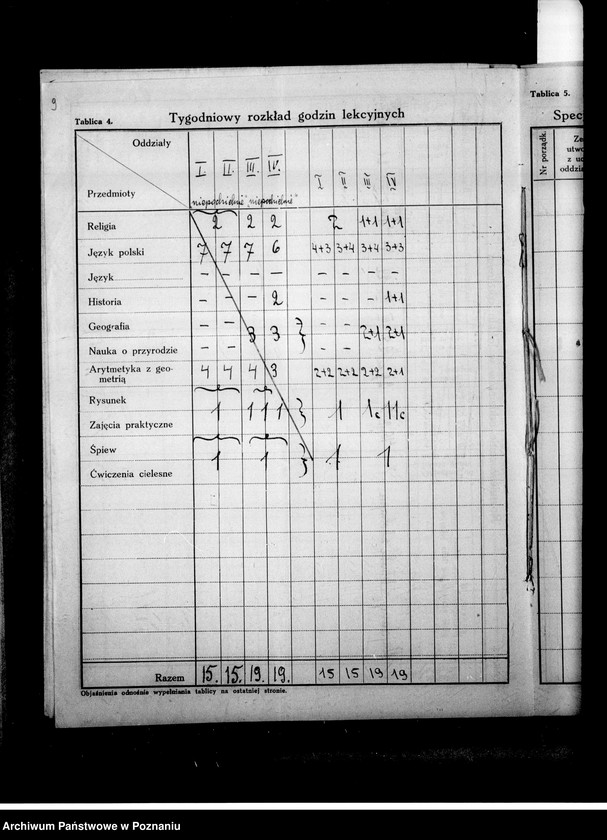 9
Tablica 4.
Tygodniowy rozkład godzin lekcyjnych
Oddziały
Przedmioty
I II. III. IV. I II III IV
Religia 2 2 2 2 1+1 1+1
Język polski 7 7 7 6 4+3 3+4 3+4 3+3
Język - - - - - - - -
Historia - - - 2 - - - 1+1
Geografia - - 3 3 } - - 2+1 2+1
Nauka o przyrodzie - - - -
Arytmetyka z geo-
metrią 4 4 4 3 2+2 2+2 2+2 2+1
Rysunek
Zajęcia praktyczne 1 1 1 1 } 1
Śpiew
Ćwiczenia cielesne 1 1 } 1 1
Razem 15. 15. 19. 19. 15 15 19 19
Objaśnienia odnośnie wypełniania tablicy na ostatniej stronie.
Tablica 5.
Spec
Nr porządk.
Ze
utwo
z uc
oddzia
Archiwum Państwowe w Poznaniu